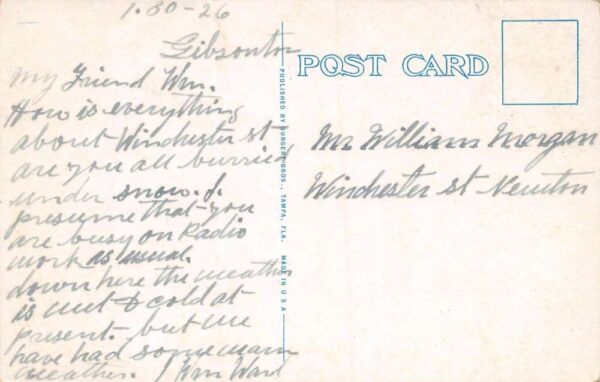 1-30-26
Gibsonton
My Friend Wm.
How is everything
about Winchester st
are you all burried
under snow. I
presume that you
are busy on Radio
work as usual.
down here the weather
is wet & cold at
present. but we
have had some warm
weather. / Wm Ward
PUBLISHED BY BURGERT BROS., TAMPA, FLA. MADE IN U S A
POST CARD
Mr William Morgan
Winchester st Newton